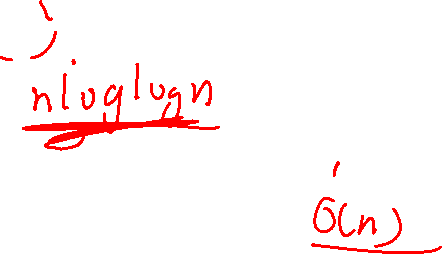 nloglogn
O(n)